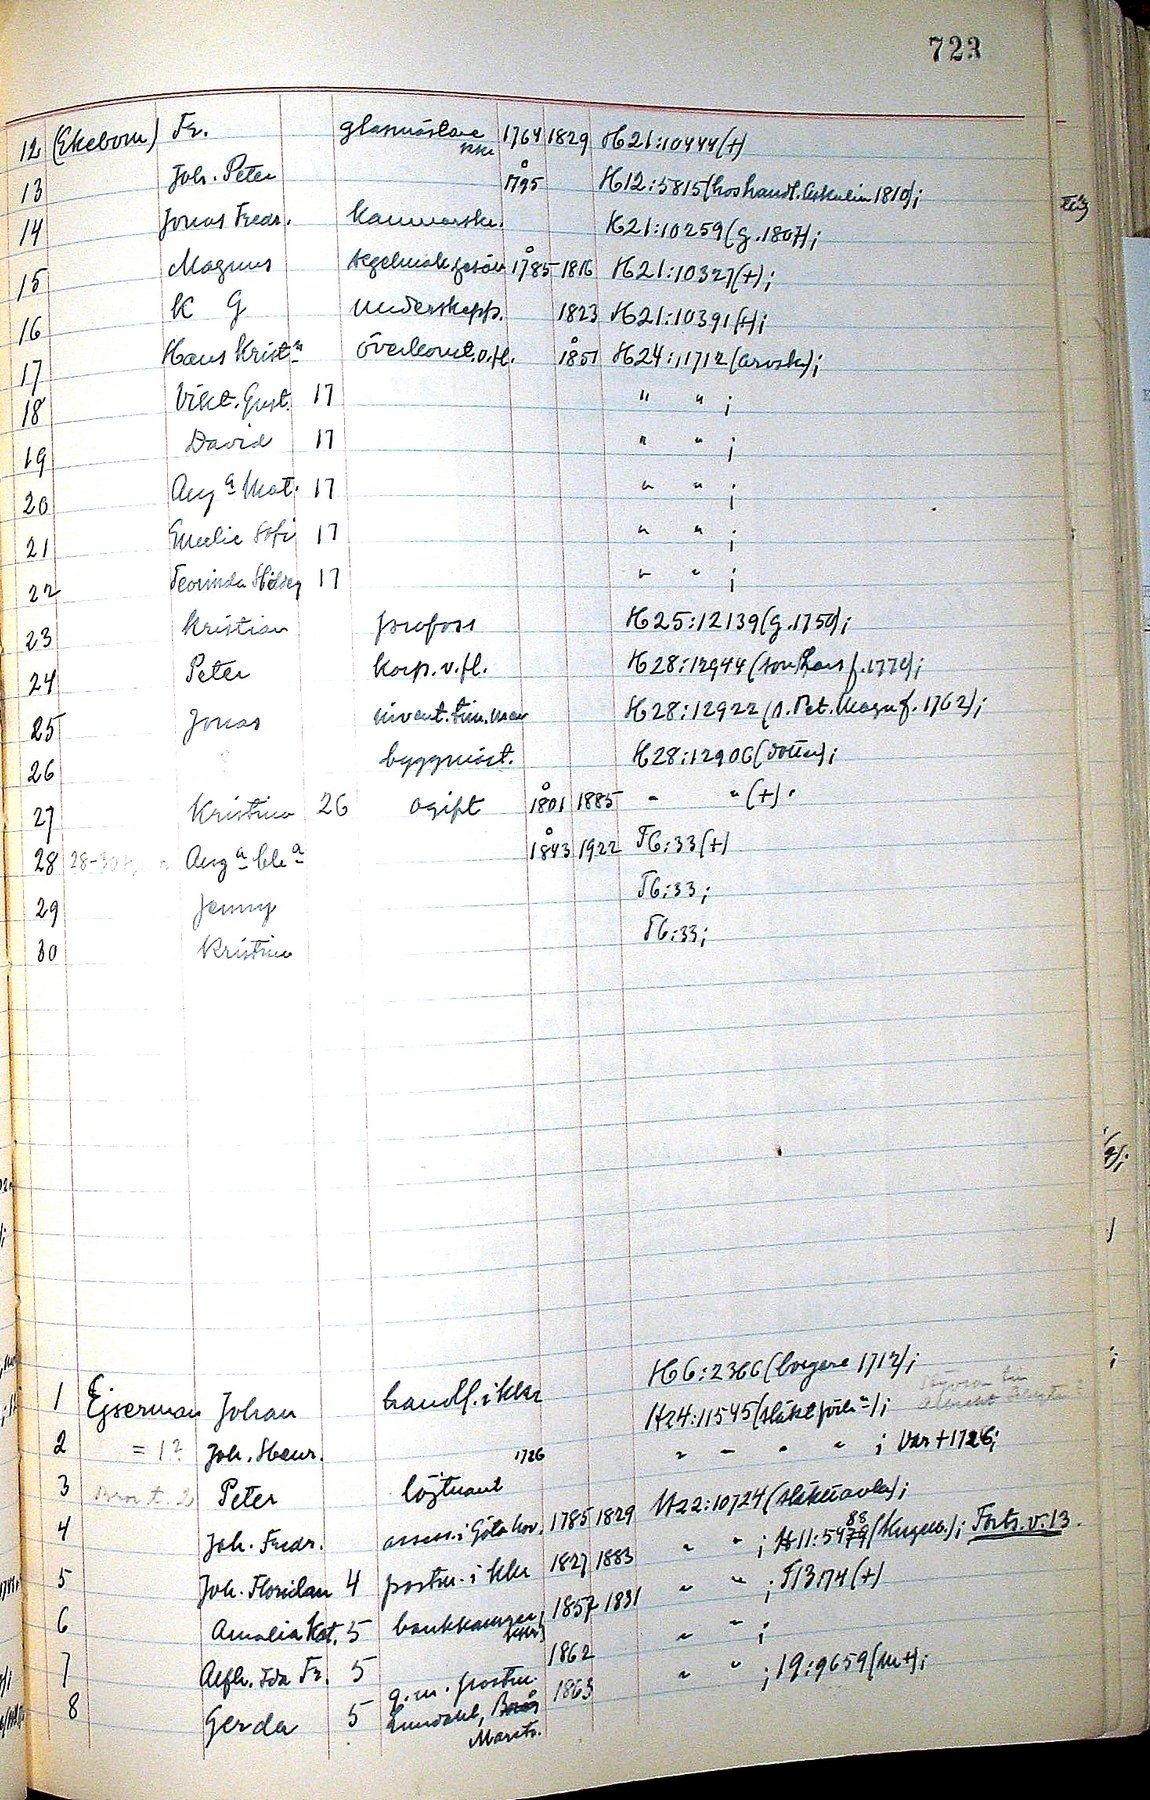 723
12 (Ekebom) Fr. glasmästare kkr 1764 1829 H21:10444(+)
13 Joh. Peter 1795 H12:5815(hos handl. Askelin 1810);
14 Jonas Fredr. kammarskr. H21:10259(g.1807);
15 Magnus segelmak.gesäll 1785 1816 H21:10327(+);
16 K G underskepp. 1823 H21:10391(+);
17 Hans Kristn överkonst.v.fl. 1851 H24:11712(arvsk);
18 Vikt. Gust. 17 " " ;
19 David 17 " " ;
20 Auga Mat. 17 " " ;
21 Emelie Sofi 17 " " ;
22 17 " " ;
23 Kristian profoss H25:12139(g.1750);
24 Peter korp.v.fl. H28:12944(son Lars f.1779);
25 Jonas invent.tim.man H28:12922(s. Pet. Magn f. 1762);
26 byggmäst. H28:12906(dotter);
27 Kristina 26 ogift 1801 1885 " " (+).
28 28-30 Auga Cla 1843 1922 F6:33(+)
29 Jenny F6:33;
30 Kristina F6:33;
1 Ejserman Johan handl. i kkr H6:2366(borgare 1712);
H24:11545(släktförhn);
2 = 1? Joh. Henr. 1726 " " " " ; var +1726;
3 Bror t. 2 Peter löjtnant H22:10724(släkttavla);
4 Joh. Fredr. assess. i Göta hov. 1785 1829 " " ; H11:5479 88 (Kungsb.); Forts. v. 13.
5 Joh. Floridan 4 postm. i kkr 1827 1883 " " ; F13:74(+)
6 Amalia Kat. 5 bankkamrer, kkr) 1857 1831 " " ;
7 Alfh. Ida Fr. 5 1862 " " ; 19:9659(m+);
8 Gerda 5 g.m. postm. Lundahl, Borås Marstr. 1863